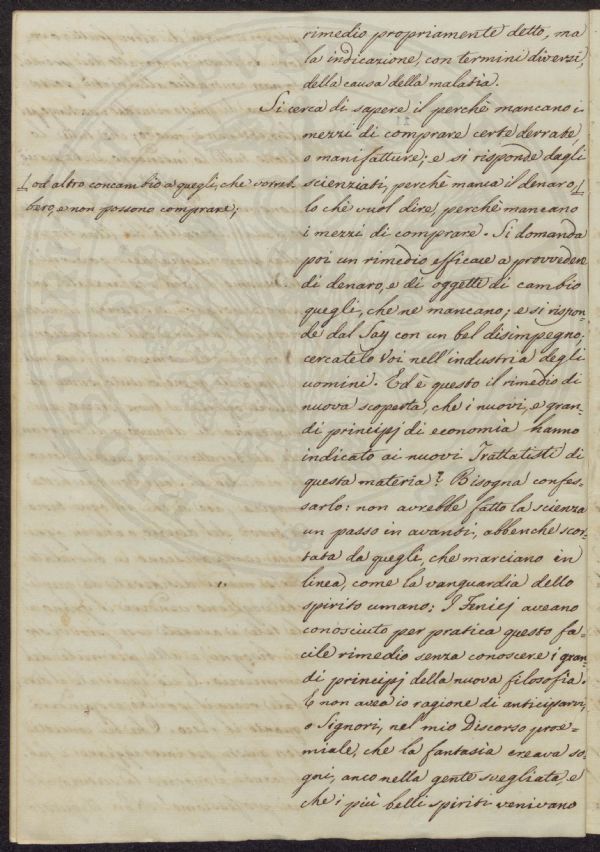 rimedio propriamente detto, ma
la indicazione, con termini diversi,
della causa della malatia.
Si cerca di sapere il perchè mancano i
mezzi di comprare certe derrate,
o manifatture; e si risponde dagli
scienziati, perchè manca il denaro,
lo chè vuol dire, perchè mancano
i mezzi di comprare. Si domanda
poi un rimedio efficace a provvedere
di denaro, e di oggetti di cambio
quegli, che ne mancano; e si rispon-
de dal Say con un bel disimpegno,
cercatelo voi nell'industria degli
uomini. Ed è questo il rimedio di
nuova scoperta, che i nuovi, e gran-
di principj di economia hanno
indicato ai nuovi Trattatisti di
questa materia? Bisogna confes-
sarlo: non avrebbe fatto la scienza
un passo in avanti, abbenchè scor-
tata da quegli, che marciano in
linea, come la vanguardia dello
spirito umano: I Fenicj aveano
conosciuto per pratica questo fa-
cile rimedio senza conoscere i gran-
di principj della nuova filosofia.
E non avea io ragione di anticiparvi,
o Signori, nel mio Discorso proe-
miale, che la fantasia creava so-
gni, anco nella gente svegliata, e
che i più belli spiriti venivano
od altro concambio a quegli, che vorreb-
bero, e non possono comprare;